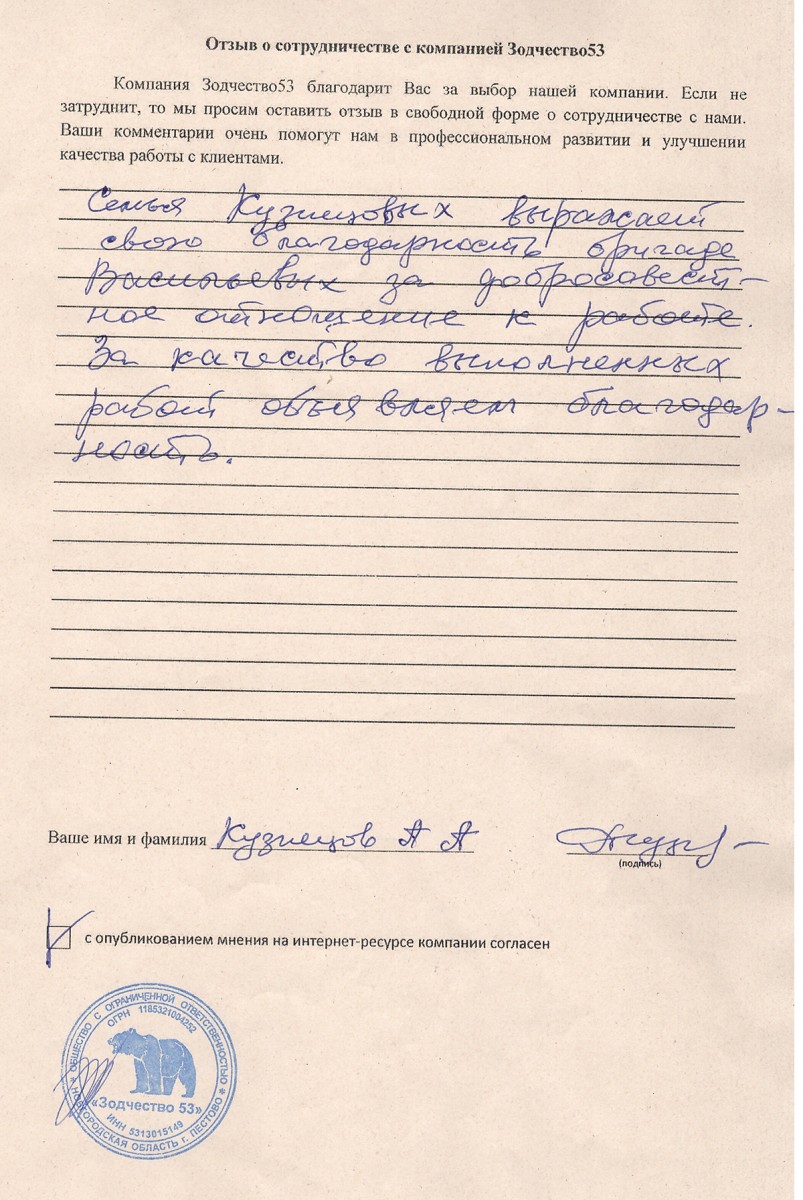 Отзыв о сотрудничестве с компанией Зодчество53
Компания Зодчество53 благодарит Вас за выбор нашей компании. Если не
затруднит, то мы просим оставить отзыв в свободной форме о сотрудничестве с нами.
Ваши комментарии очень помогут нам в профессиональном развитии и улучшении
качества работы с клиентами.
Семья Кузнецовых выражает
свою благодарность бригаде
Васильевых за добросовест-
ное отношение к работе.
За качество выполненных
работ объявляем благодар-
ность.
Ваше имя и фамилия Кузнецов А А
(подпись)
с опубликованием мнения на интернет-ресурсе компании согласен
ОБЩЕСТВО С ОГРАНИЧЕННОЙ ОТВЕТСТВЕННОСТЬЮ
ОГРН 1185321004252
«Зодчество 53»
ИНН 5313015149
НОВГОРОДСКАЯ ОБЛАСТЬ г. ПЕСТОВО